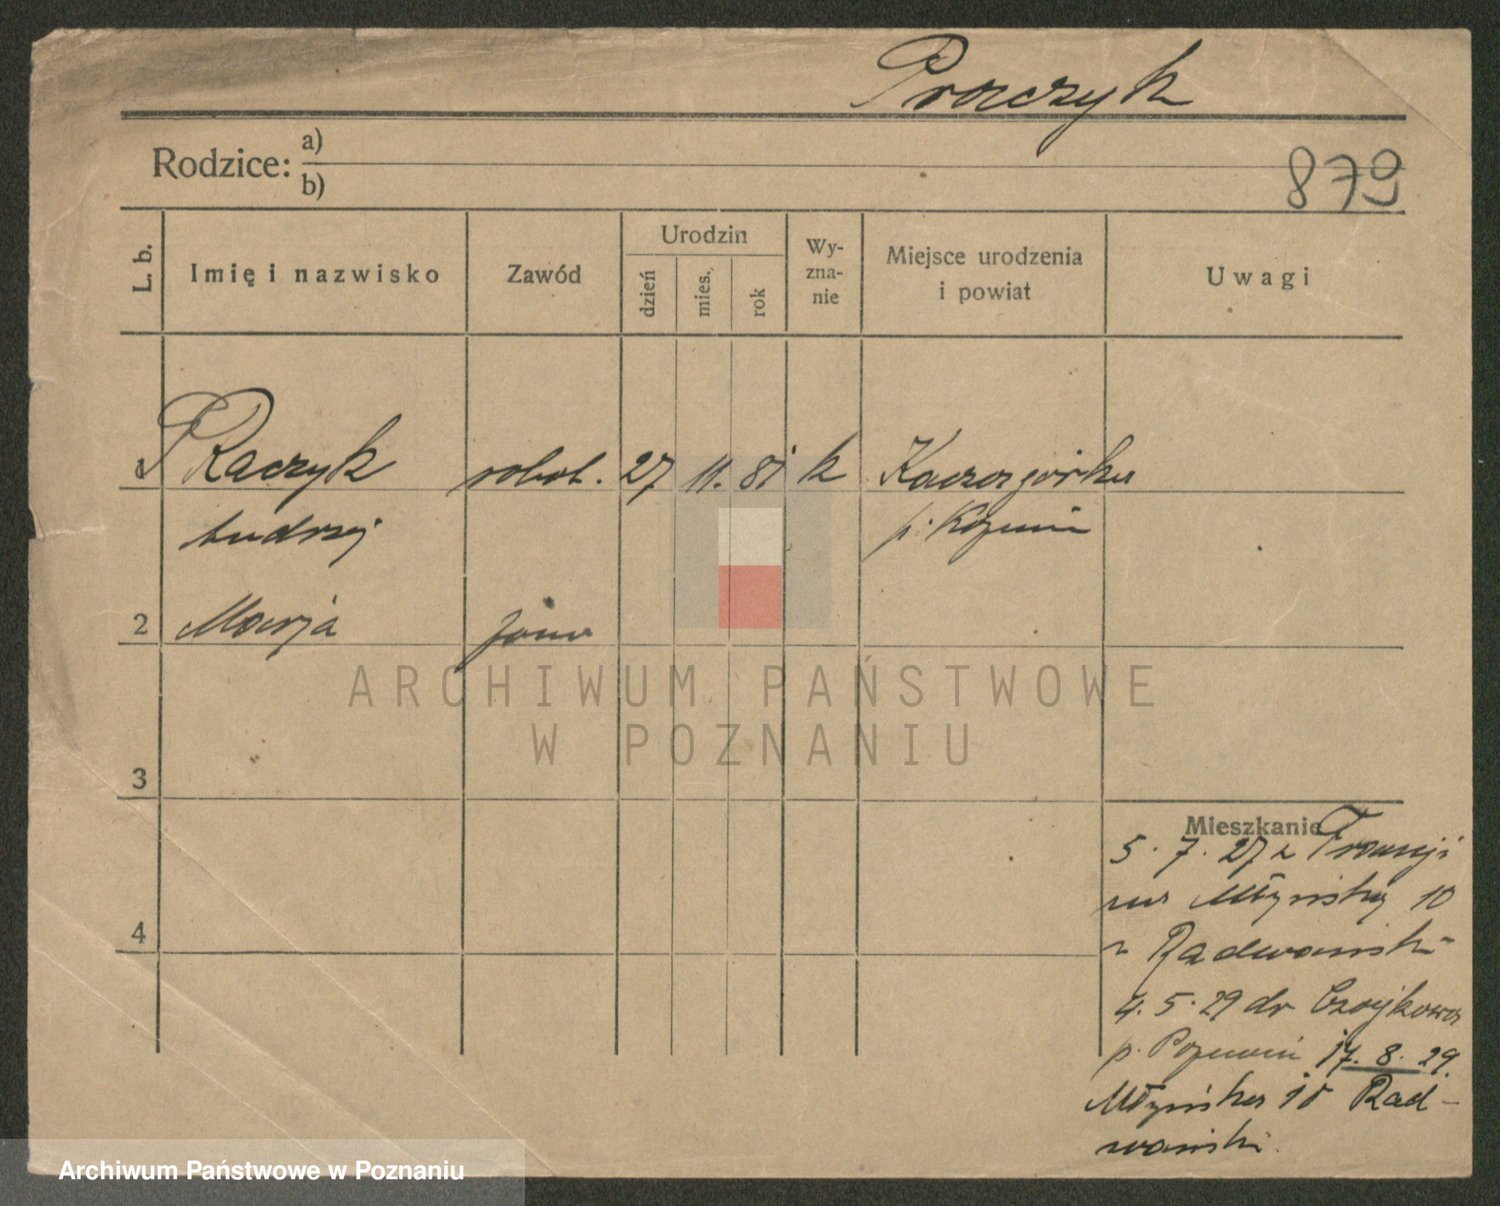 Proczyk
Rodzice: a)
b)
879
L. b.
Imię i nazwisko
Zawód
Urodzin
dzień
mies.
rok
Wy-
zna-
nie
Miejsce urodzenia
i powiat
Uwagi
1 Raczyk robot. 27 11. 81 k Kaczagórka
Andrzej p. Koźmin
2 Marja żona
ARCHIWUM PAŃSTWOWE
W POZNANIU
3
4
Mieszkanie
5. 7. 27 z Francji
na Młyńską 10
Radwański
4. 5. 29 do
p. Poznań 17. 8. 29.
Młyńska 10 Rad-
wański.
Archiwum Państwowe w Poznaniu